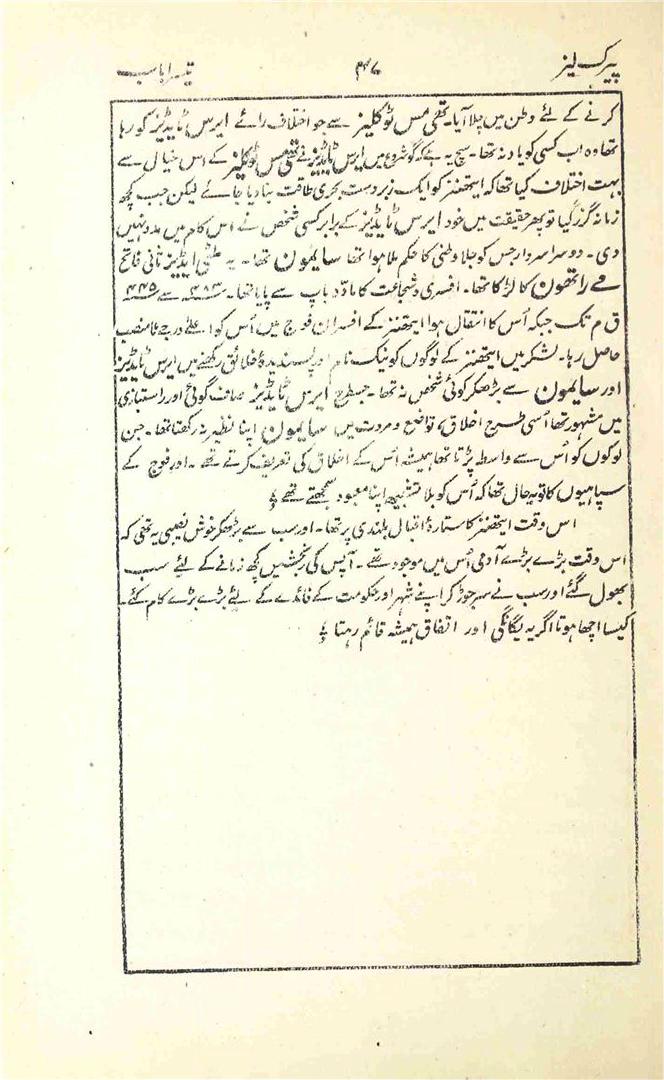 پیرک لیز
۳۷
تیسرا باب
کرنے کے لئے وطن میں چلا آیا۔ تھی مس ٹوکلیز سے جو اختلاف رائے ایرس ٹایڈیز کو رہا
تھا وہ اب کسی کو یاد نہ تھا۔ سچ یہ ہے کہ گو شروع میں ایرس ٹایڈیز نے تھی مس ٹوکلیز کے اس خیال سے
بہت اختلاف کیا تھا کہ ایتھنز کو ایک زبردست بحری طاقت بنا دیا جائے لیکن جب کچھ
زمانہ گزر گیا تو پھر حقیقت میں خود ایرس ٹایڈیز کے برابر کسی شخص نے اس کام میں مدد نہیں
دی۔ دوسرا سردار جس کو جلا وطنی کا حکم ملا ہوا تھا سایمون تھا۔ یہ ملٹی ایڈیز ثانی فاتح
مے راتھون کا لڑکا تھا۔ افسری و شجاعت کا مادّہ باپ سے پایا تھا۔ ۴۸۳ سے ۴۴۵
ق م تک جبکہ اُس کا انتقال ہوا ایتھنز کے افسران فوج میں اُس کو اعلےٰ درجے کا منصب
حاصل رہا۔ لشکر میں ایتھنز کے لوگوں کو نیک نام اور پسندیدۂ خلائق رکھنے میں ایرس ٹایڈیز
اور سایمون سے بڑھکر کوئی شخص نہ تھا۔ جسطرح ایرس ٹایڈیز صاف گوئی اور راستبازی
میں مشہور تھا اُسی طرح اخلاق، تواضع و مروت میں سایمون اپنا نظیر نہ رکھتا تھا۔ جن
لوگوں کو اُس سے واسطہ پڑتا تھا ہمیشہ اُس کے اخلاق کی تعریف کرتے تھے۔ اور فوج کے
سپاہیوں کا تو یہ حال تھا کہ اُس کو بلا تشبیہ اپنا معبود سمجھتے تھے ؛
اس وقت ایتھنز کا ستارۂ اقبال بلندی پر تھا۔ اور سب سے بڑھکر خوش نصیبی یہ تھی کہ
اس وقت بڑے بڑے آدمی اُس میں موجود تھے۔ آپس کی رنجشیں کچھ زمانے کے لئے سب
بھول گئے اور سب نے سر جوڑ کر اپنے شہر اور حکومت کے فائدے کے لئے بڑے بڑے کام کئے۔
کیسا اچھا ہوتا اگر یہ یگانگی اور اتفاق ہمیشہ قائم رہتا ؛